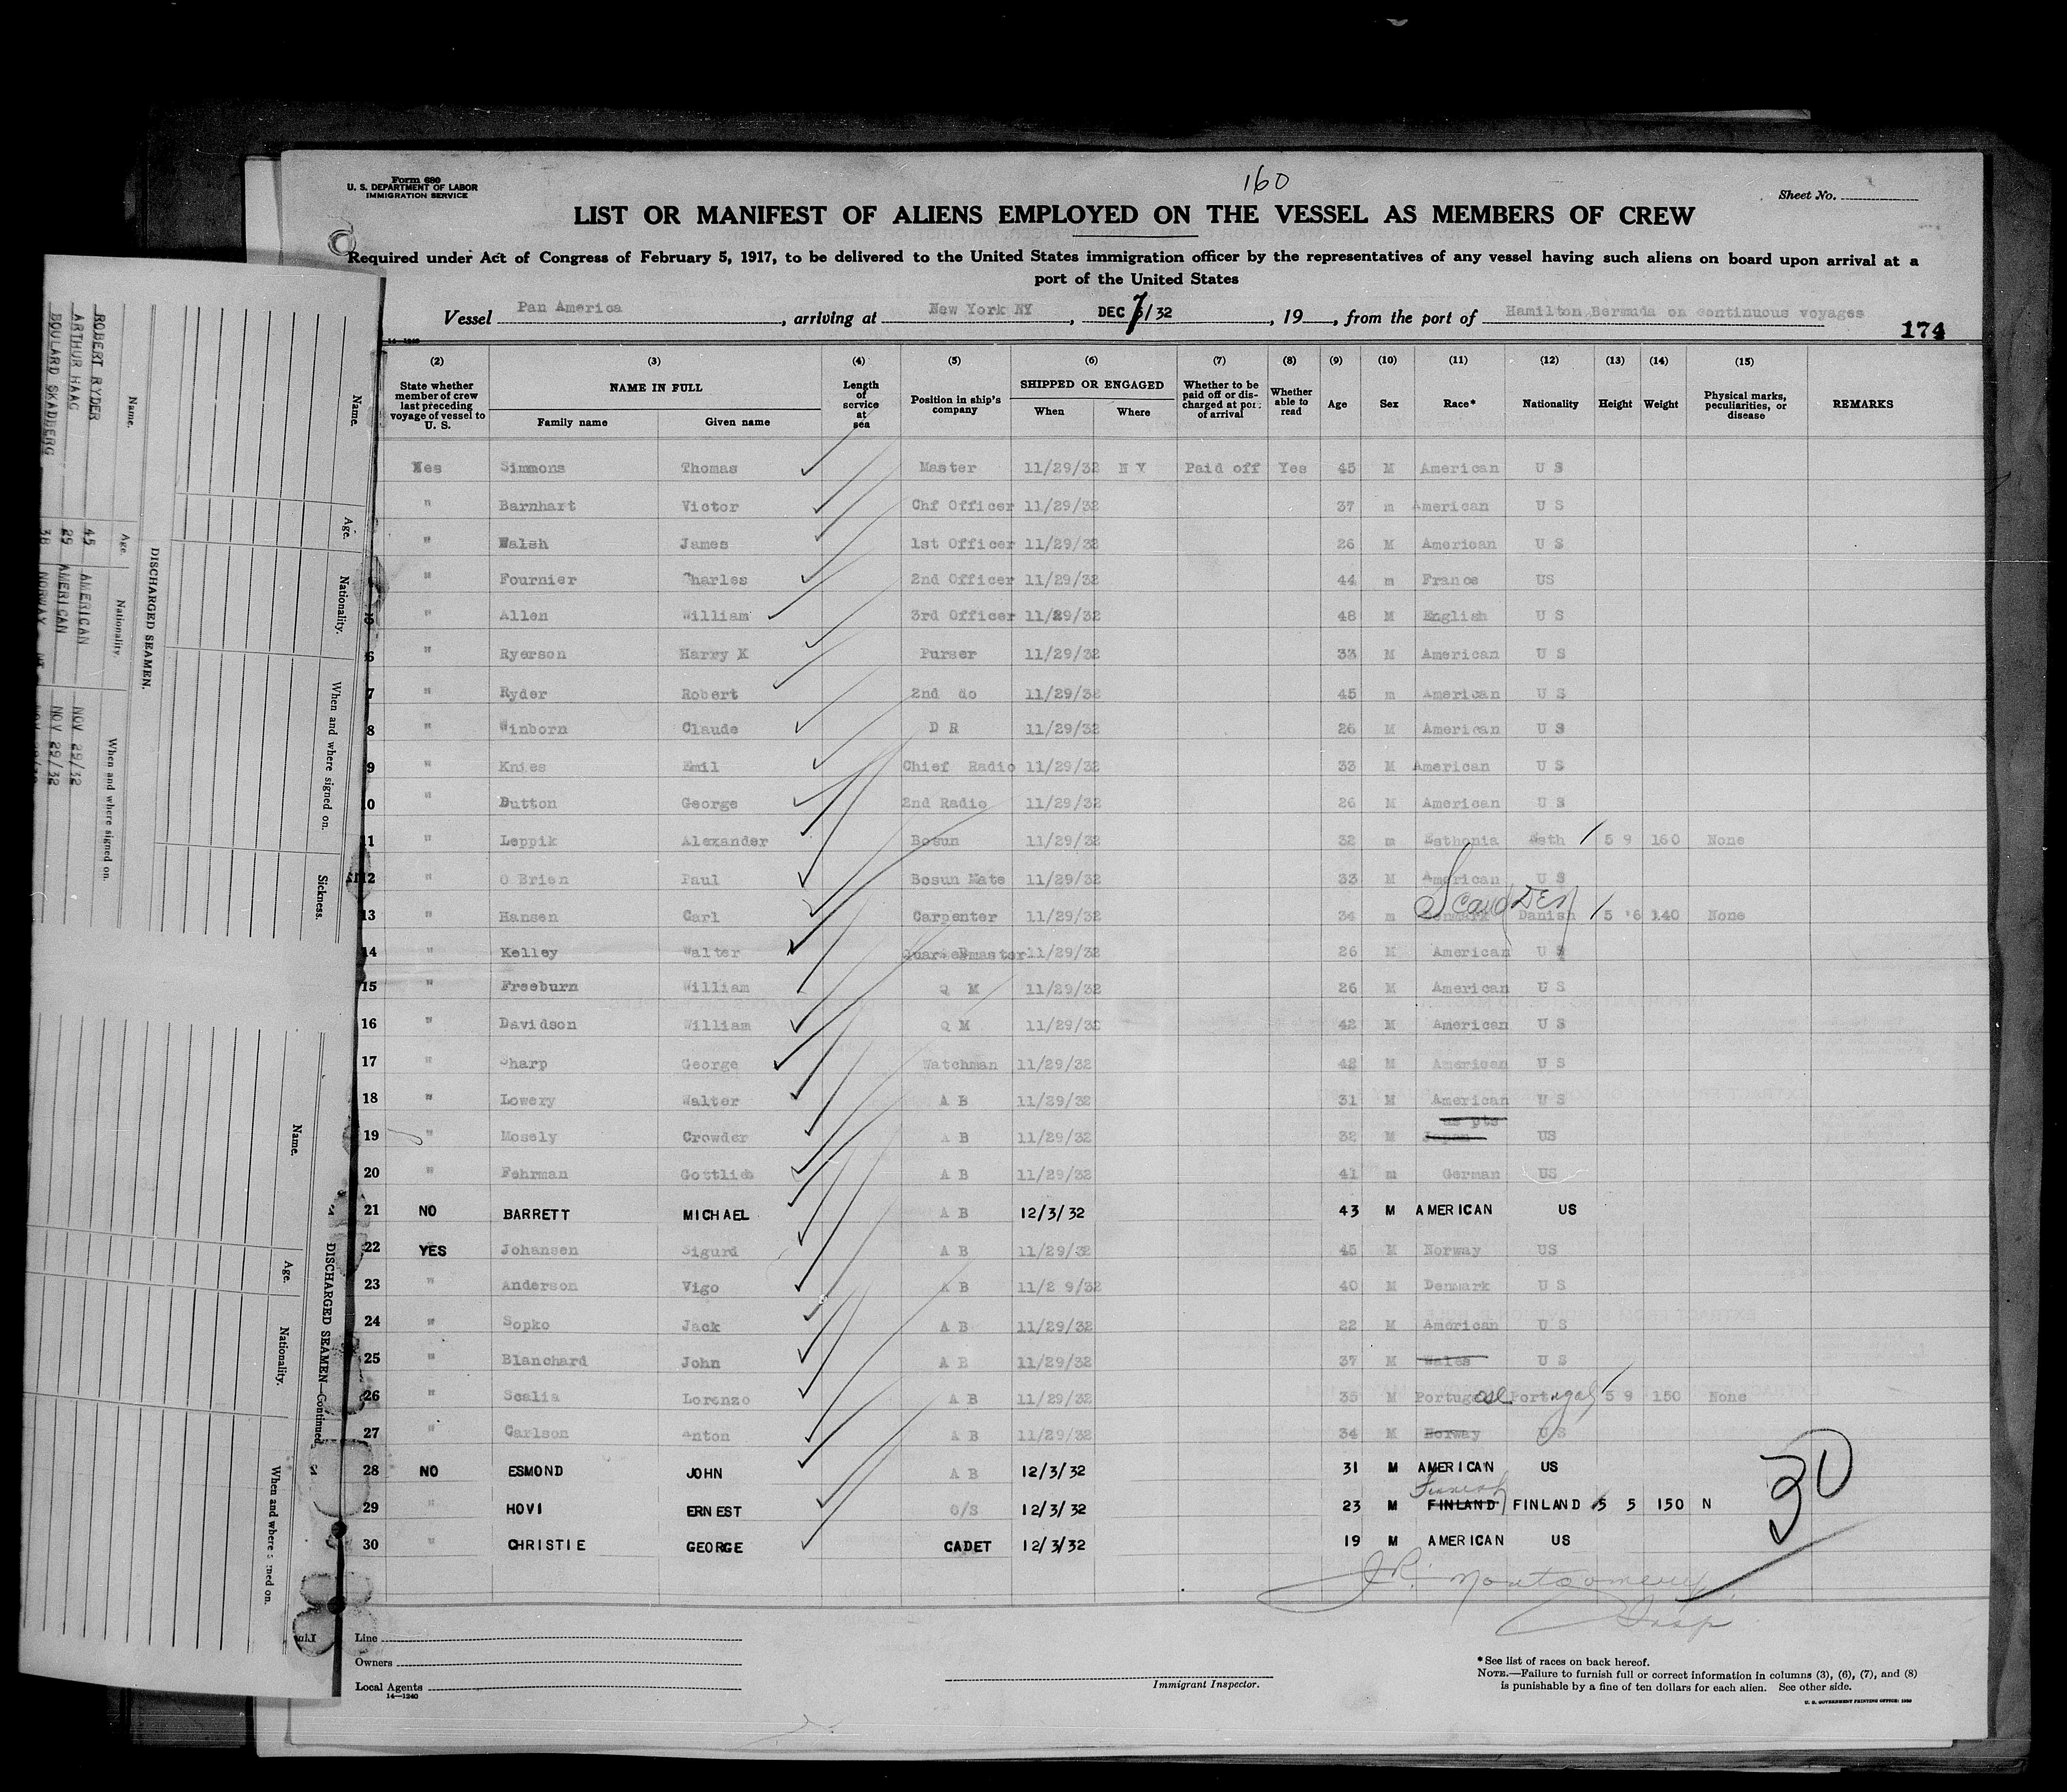 Form 680
U. S. DEPARTMENT OF LABOR
IMMIGRATION SERVICE
160
Sheet No.
LIST OR MANIFEST OF ALIENS EMPLOYED ON THE VESSEL AS MEMBERS OF CREW
Required under Act of Congress of February 5, 1917, to be delivered to the United States immigration officer by the representatives of any vessel having such aliens on board upon arrival at a
port of the United States
Vessel Pan America, arriving at New York NY, DEC 7/32, 19, from the port of Hamilton, Bermuda on continuous voyages
174
14—1240
(2) (3) (4) (5) (6) (7) (8) (9) (10) (11) (12) (13) (14) (15)
State whether member of crew last preceding voyage of vessel to U. S. NAME IN FULL Family name Given name Length of service at sea Position in ship's company SHIPPED OR ENGAGED When Where Whether to be paid off or discharged at port of arrival Whether able to read Age Sex Race* Nationality Height Weight Physical marks, peculiarities, or disease REMARKS
Yes Simmons Thomas Master 11/29/32 N Y Paid off Yes 45 M American U S
" Barnhart Victor Chf Officer 11/29/32 37 m American U S
" Walsh James 1st Officer 11/29/32 26 M American U S
" Fournier Charles 2nd Officer 11/29/32 44 m France US
" Allen William 3rd Officer 11/29/32 48 M English U S
6 " Ryerson Harry K Purser 11/29/32 33 M American U S
7 " Ryder Robert 2nd do 11/29/32 45 m American U S
8 " Winborn Claude D R 11/29/32 26 M American U S
9 " Knies Emil Chief Radio 11/29/32 33 M American U S
10 " Dutton George 2nd Radio 11/29/32 26 M American U S
11 " Leppik Alexander Bosun 11/29/32 32 m Esthonia Esth 5 9 160 None
12 " O Brien Paul Bosun Mate 11/29/32 33 M American U S
13 " Hansen Carl Carpenter 11/29/32 34 m Denmark Scand Danish 5 6 140 None
14 " Kelley Walter Quartermaster 11/29/32 26 M American U S
15 " Freeburn William Q M 11/29/32 26 M American U S
16 " Davidson William Q M 11/29/32 42 M American U S
17 " Sharp George Watchman 11/29/32 42 M American U S
18 " Lowery Walter A B 11/29/32 31 M American U S
19 " Mosely Crowder A B 11/29/32 32 M Japan US
20 " Fehrman Gottlieb A B 11/29/32 41 m German US
21 NO BARRETT MICHAEL A B 12/3/32 43 M AMERICAN US
22 YES Johansen Sigurd A B 11/29/32 45 M Norway US
23 " Anderson Vigo A B 11/2 9/32 40 M Denmark U S
24 " Sopko Jack A B 11/29/32 22 M American U S
25 " Blanchard John A B 11/29/32 37 M Wales U S
26 " Scalia Lorenzo A B 11/29/32 35 M Portuguese Portugal 5 9 150 None
27 " Carlson Anton A B 11/29/32 34 M Norway U S
28 NO ESMOND JOHN A B 12/3/32 31 M AMERICAN US
29 " HOVI ERNEST O/S 12/3/32 23 M FINLAND Finnish FINLAND 5 5 150 N
30 " CHRISTIE GEORGE CADET 12/3/32 19 M AMERICAN US
30
J R. Montgomery
Insp
Line
Owners
Local Agents
14—1240
Immigrant Inspector.
*See list of races on back hereof.
NOTE.—Failure to furnish full or correct information in columns (3), (6), (7), and (8)
is punishable by a fine of ten dollars for each alien. See other side.
U. S. GOVERNMENT PRINTING OFFICE: 1930
Name. Age. Nationality. When and where signed on. Sickness.
DISCHARGED SEAMEN.
Name. Age. Nationality. When and where signed on.
ROBERT RYDER 45 AMERICAN NOV 29/32
ARTHUR HAAG 29 AMERICAN NOV 29/32
BOULARD SKADBERG 38 NORWAY
DISCHARGED SEAMEN—Continued
Name. Age. Nationality. When and where signed on.